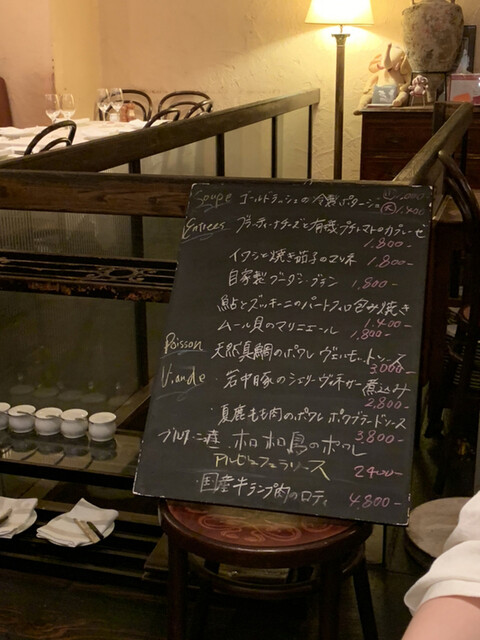 Soupe ゴールドラッシュの冷製ポタージュ ㊛1,000- ㊅1,400
Entrées ブラッティーナチーズと有機プチトマトのカプレーゼ
1,800-
イワシと焼き茄子のマリネ 1,800-
自家製ブーダン・ブラン 1,800-
鮎とズッキーニのパートフィロ包み焼き
1,400-
ムール貝のマリニエール 1,800-
Poisson 天然真鯛のポワレ ヴェルモットソース
3,000-
Viande ・若中豚のシェリーヴィネガー煮込み
2,800-
・夏鹿もも肉のポワレ ポワヴラードソース
3,800-
ブルターニュ産 ホロホロ鳥のポワレ
アルビュフェラソース 2400-
・国産牛ランプ肉のロティ 4,800-